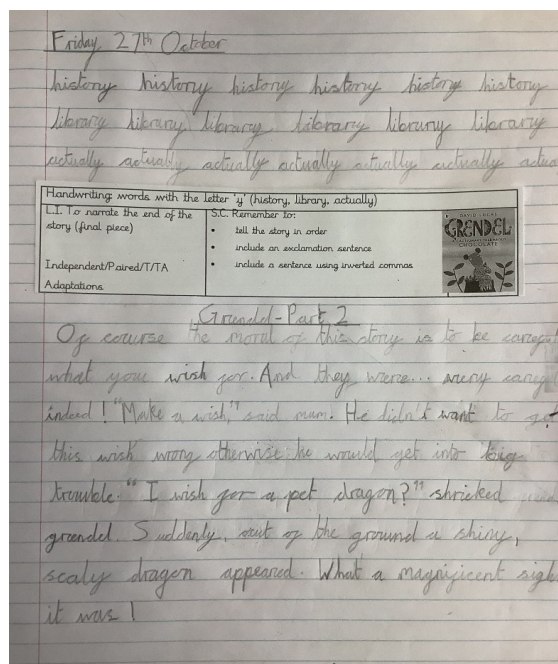 Friday 27th October
history history history history history history
library library library library library library
actually actually actually actually actually actually
Handwriting words with the letter 'y' (history, library, actually)
L.I. To narrate the end of the
story (final piece)
Independent/Paired/T/TA
Adaptations
S.C. Remember to:
• tell the story in order
• include an exclamation sentence
• include a sentence using inverted commas
GRENDEL
CHOCOLATE
Grendel-Part 2
Of course the moral of this story is to be
what you wish for. And they were... very
indeed! "Make a wish," said mum. He didn't want to
this wish wrong otherwise he would get into big
trouble. "I wish for a pet dragon?" shrieked
grendel. Suddenly, out of the ground a shiny,
scaly dragon appeared. What a magnificent
it was!